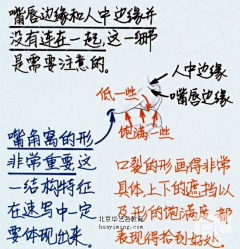 嘴唇边缘和人中边缘并
没有连在一起,这一细节
是需要注意的。
人中边缘
嘴唇边缘
低一些
饱满一些
嘴角窝的形
非常重要这
一结构特征
在速写中一定
要体现出来。
口裂的形画得非常
具体,上下的遮挡以
及形的饱满度都
表现得恰到好处。
北京华艺名教育
huayiming.com